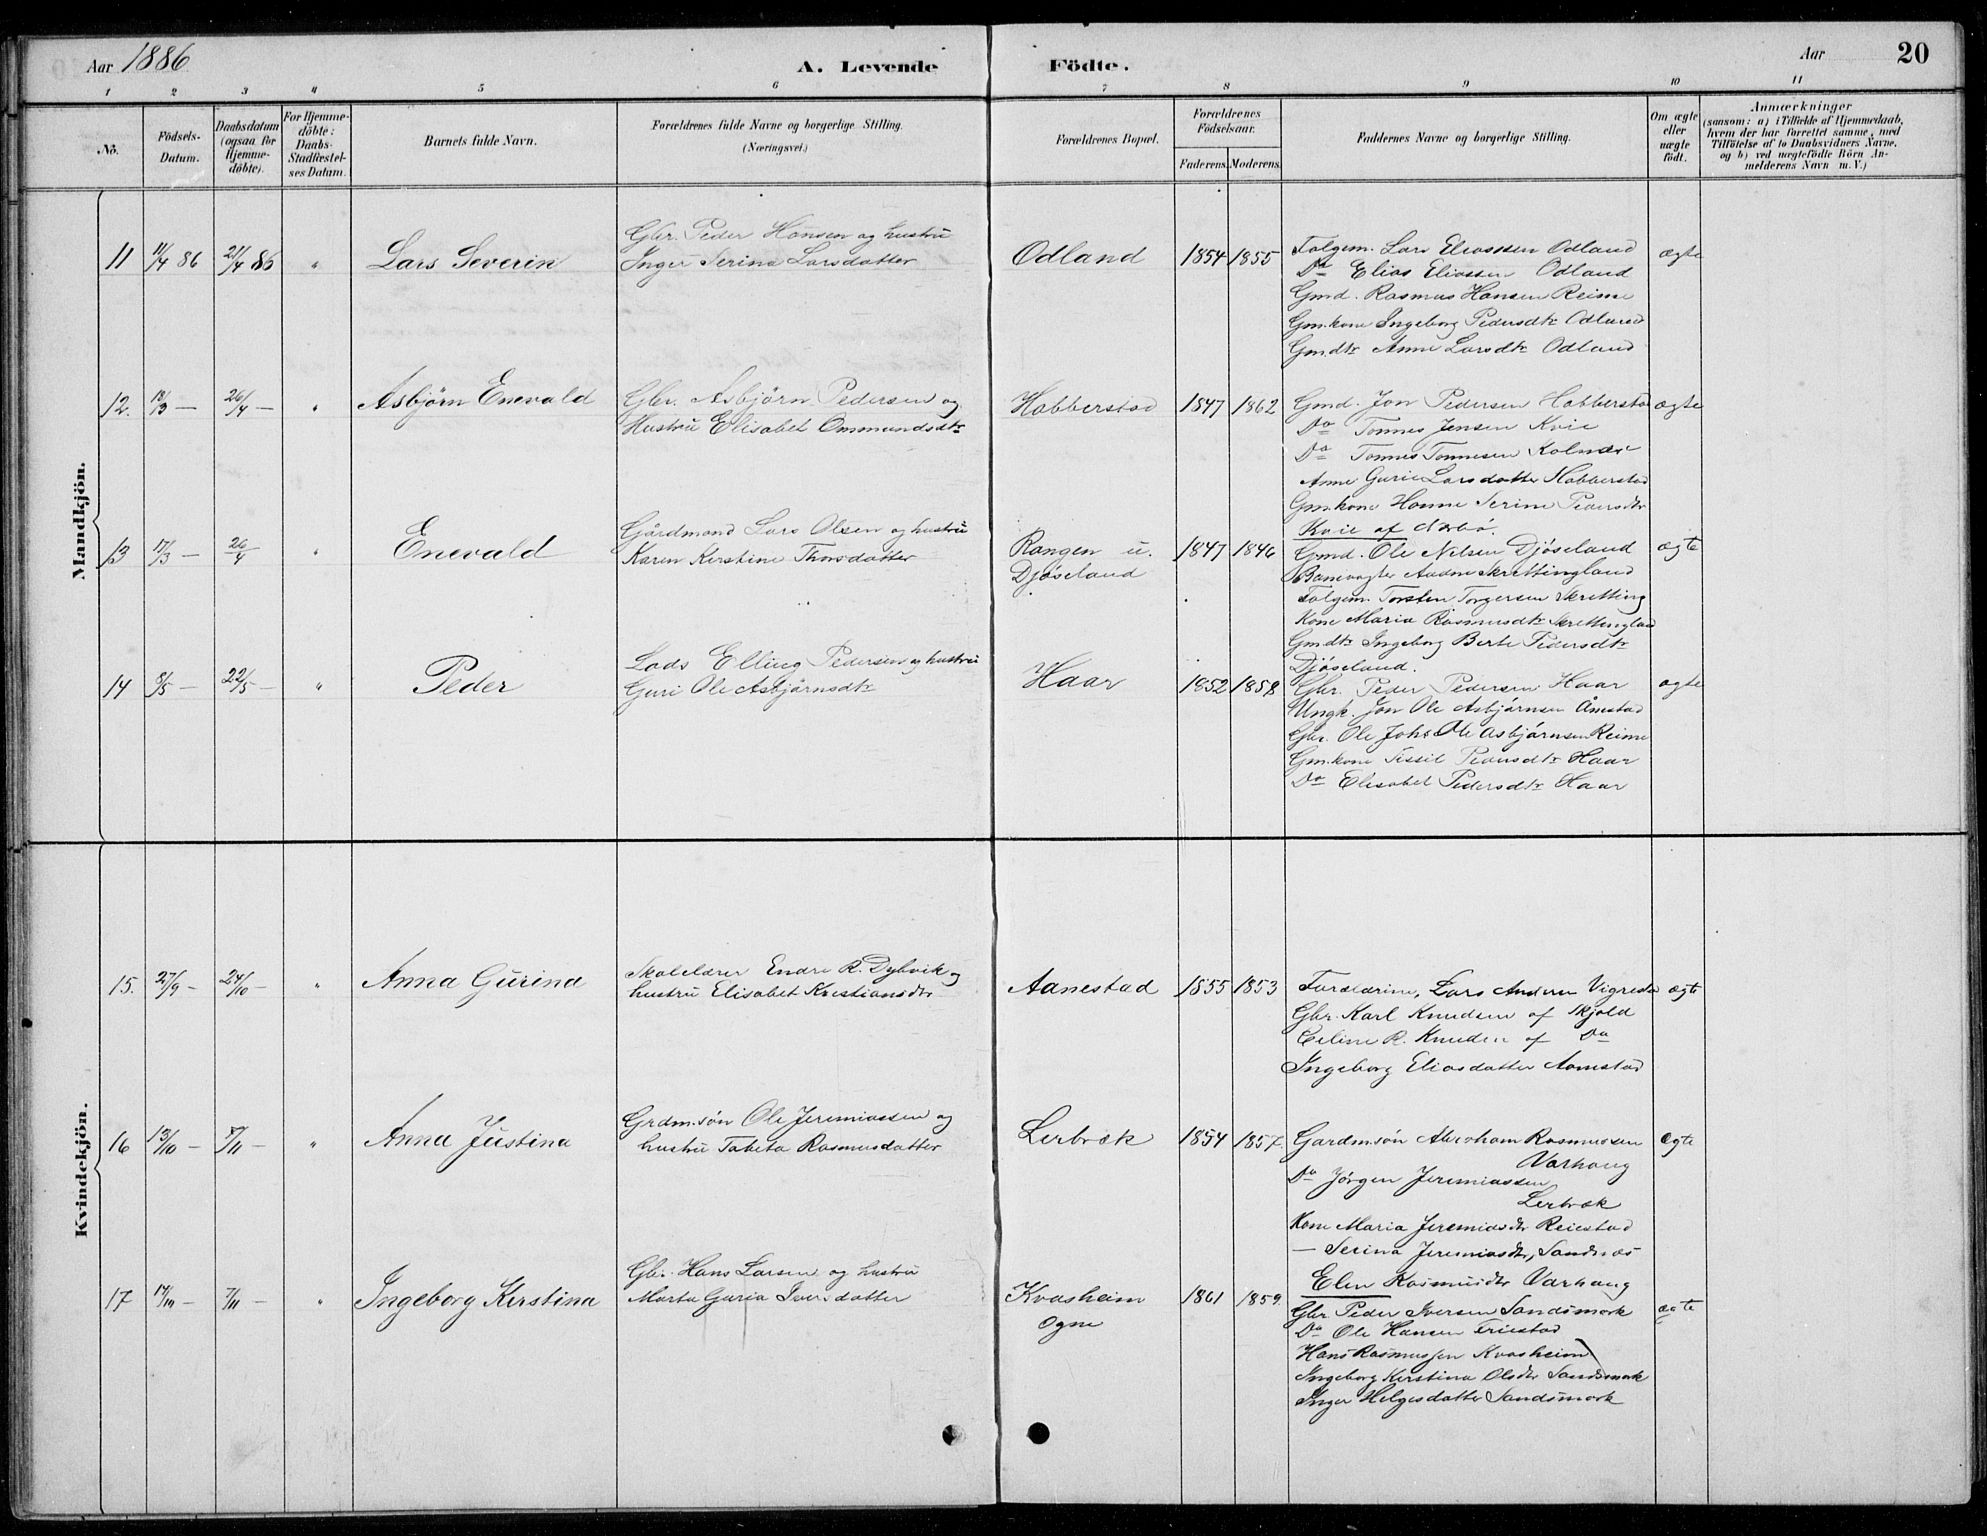 Aar 1886 A. Levende Födte. Aar 20
1 2 3 4 5 6 7 8 9 10 11
No.
Födsels-Datum.
Daabsdatum (ogsaa for Hjemme-döbte).
For Hjemme-döbte: Daabs-Stadfæstel-ses Datum.
Barnets fulde Navn.
Forældrenes fulde Navne og borgerlige Stilling.
(Næringsvei.)
Forældrenes Bopæl.
Forældrenes Födselsaar.
Faderens. Moderens.
Faddernes Navne og borgerlige Stilling.
Om ægte eller uægte födt.
Anmærkninger
(saasom: a) i Tilfælde af Hjemmedaab,
hvem der har forrettet samme, med
Tilföielse af to Daabsvidners Navne.
og b) ved uægtefödte Börn An-
melderens Navn m. V.)
Mandkjön.
11 11/4 86 21/4 86 " Lars Severin
Gbr. Peder Hansen og hustru
Inger Serine Larsdatter
Odland 1854 1855
Folgem. Lars Eliassen Odland
Do Elias Eliassen Odland
Gmd. Rasmus Hansen Reime
Gm.kone Ingeborg Pedersdtr Odland
Gm.dtr Anne Larsdtr Odland
ægte
12. 18/3 — 26/4 — " Asbjørn Enevald
Gbr. Asbjørn Pedersen og
Hustru Elisabet Ommundsdtr
Habberstad 1847 1862
Gmd. Jon Pedersen Habberstad
Do Tønnes Jensen Kvie
Do Tønnes Tønnesen Kolnæs
Anne Gurie Larsdatter Habberstad
Gm.kone Hanne Serine Pedersdtr
Kvie af Nærbö.
ægte
13 17/3 — 26/4 " Enevald
Gårdmand Lars Olsen og hustru
Karen Kirstine Thorsdatter
Rangen u.
Djöseland 1847 1846
Gmd. Ole Nelsen Djöseland
Banevogter Aadne Skrettingland
Folgem. Torsten Torgersen Skretting
Kone Maria Rasmusdtr Skrettingland
Gmdtr Ingeborg Berte Pedersdtr
Djöseland.
ægte
14 8/5 — 22/5 — " Peder
Lods Elling Pedersen og hustru
Guri Ole Asbjørnsdtr
Haar 1852 1858
Gbr. Peder Pedersen Haar
Ungk. Jon Ole Asbjørnsen Ånestad
Gbr. Ole Johs Ole Asbjørnsen Reime
Gm.kone Sissil Pedersdtr Haar
Do Elisabet Pedersdtr Haar
ægte
Kvindekjön.
15. 27/9 — 24/10 — " Anna Gurina
Skolelærer Endre R. Dybvik og
hustru Elisabet Kristiansdtr
Aanestad 1855 1853
Lars Andersen Vigrestad
Gbr. Karl Knudsen af Skjold
Celine R. Knudsen af Do
Ingeborg Eliasdatter Aanestad
ægte
16 13/10 — 7/11 — " Anna Justina
Grdm.søn Ole Jeremiassen og
hustru Tabeta Rasmusdatter
Lerbræk 1854 1857.
Gardmsøn Abraham Rasmussen
Varhaug
Do Jørgen Jeremiassen
Lerbræk
Kone Maria Jeremiasdtr Reiestad
— Serina Jeremiasdtr, Sandnæs
Elen Rasmusdtr Varhaug
ægte
17 14/10 — 7/11 — " Ingeborg Kirstina
Gbr. Hans Larsen og hustru
Marta Guria Iversdatter
Kvasheim
Ogne 1861 1859.
Gbr Peder Iversen Sandsmark
Do Ole Hansen Friestad
Hans Rasmussen Kvasheim
Ingeborg Kirstina Olsdtr Sandsmark
Inger Helgesdatter Sandsmark
ægte